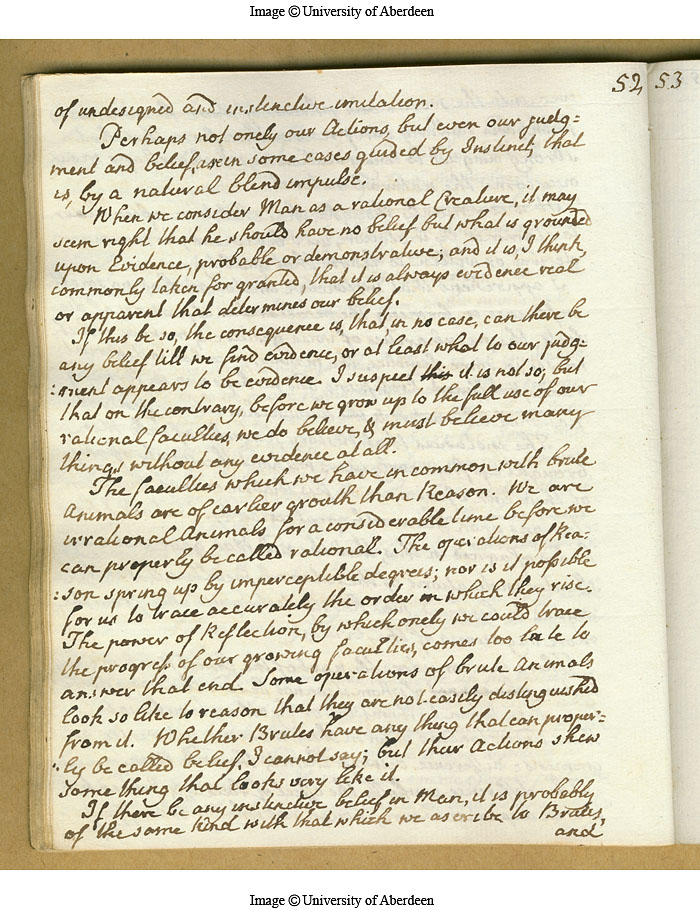 Image © University of Aberdeen
52 53
of undesigned and instinctive imitation.
Perhaps not onely our Actions, but even our judg=
ment and belief, are in some cases guided by Instinct, that
is, by a natural blind impulse.
When we consider Man as a rational Creature, it may
seem right that he should have no belief but what is grounded
upon Evidence, probable or demonstrative; and it is, I think,
commonly taken for granted, that it is always evidence real
or apparent that determines our belief.
If this be so, the consequence is, that, in no case, can there be
any belief till we find evidence, or at least what to our judg=
:ment appears to be evidence. I suspect this it is not so; but
that on the contrary, before we grow up to the full use of our
rational faculties, we do believe, & must believe many
things without any evidence at all.
The faculties which we have in common with brute
Animals are of earlier growth than Reason. We are
irrational Animals for a considerable time before we
can properly be called rational. The operations of Rea=
:son spring up by imperceptible degrees; nor is it possible
for us to trace accurately the order in which they rise.
The power of Reflection, by which onely we could trace
the progress of our growing faculties, comes too late to
answer that end. Some operations of brute Animals
look so like to reason that they are not easily distinguished
from it. Whether Brutes have any thing that can proper=
:ly be called belief, I cannot say; but their Actions shew
something that looks very like it.
If there be any instinctive belief in Man, it is probably
of the same kind with that which we ascribe to Brutes,
and
Image © University of Aberdeen